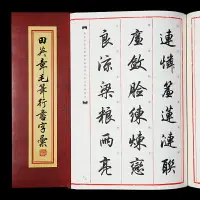 田英章毛筆行書字彙
連憐蓮漣聯
廉斂臉練煉戀
良涼梁糧兩亮